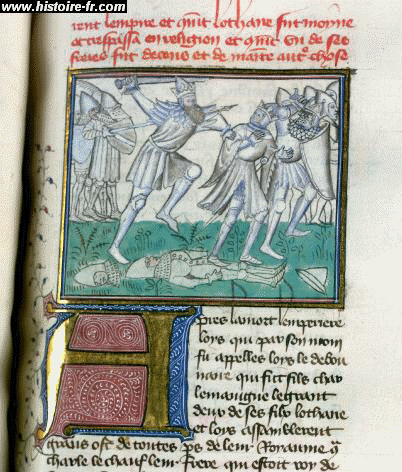 www.histoire-fr.com
rent lempire et comment lothaire fut moyne
et trespassa en religion et comment un de ses
freres fut deceus et de mainte autre chose
Apres la mort lempereur
loys qui par son nom
fu apelles loys le debon
naire qui fut fils char
lemaigne le grant
deux de ses filz lothaire
et loys assemblerent
grans ost de toutes pars de leur Royaume
charle le chauf leur frere qui estoit roy de